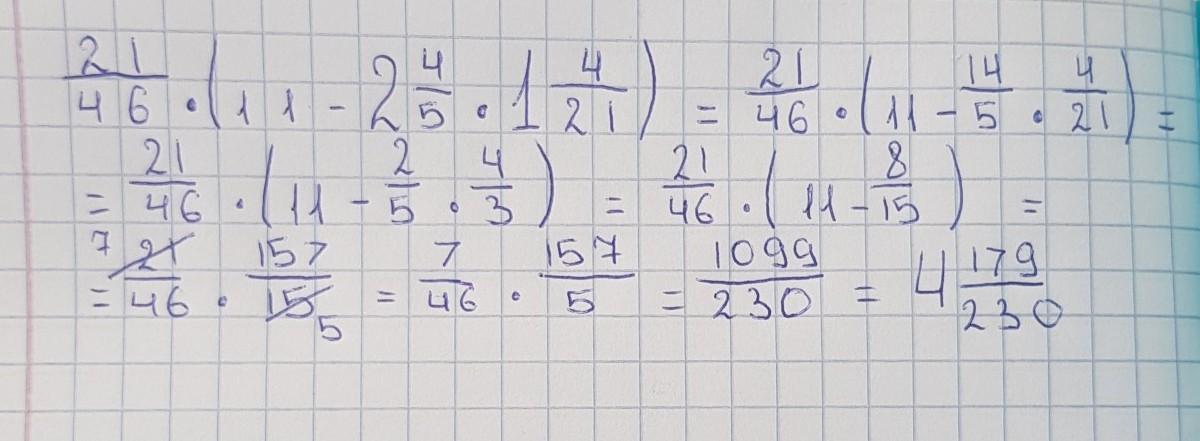 21/46 · (11 - 2 4/5 · 1 4/21) = 21/46 · (11 - 14/5 · 4/21) =
= 21/46 · (11 - 2/5 · 4/3) = 21/46 · (11 - 8/15) =
= 7 21/46 · 157/15 5 = 7/46 · 157/5 = 1099/230 = 4 179/230